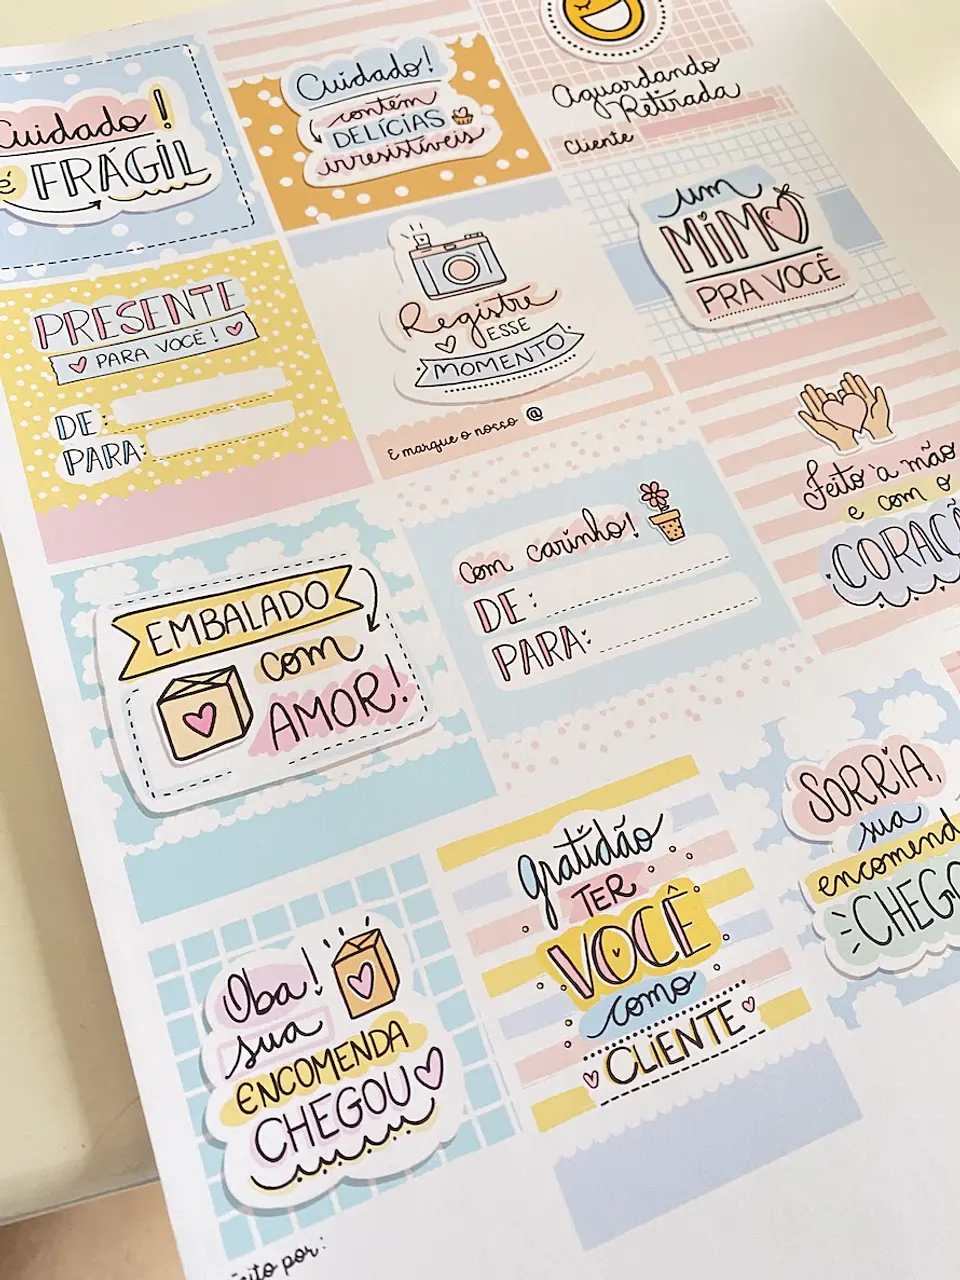 Cuidado!
é FRÁGIL
Cuidado!
contém
DELÍCIAS
irresistíveis
Aguardando
Retirada
Cliente
PRESENTE
PARA VOCÊ!
DE:
PARA:
Registre
ESSE
MOMENTO
E marque o nosso @
um
MIMO
PRA VOCÊ
EMBALADO
com
AMOR!
com carinho!
DE:
PARA:
Feito à mão
e com o
CORAÇ
Oba!
sua
ENCOMENDA
CHEGOU
Gratidão
TER
VOCÊ
como
CLIENTE
SORRIA,
sua
encomend
CHEGO
eito por: